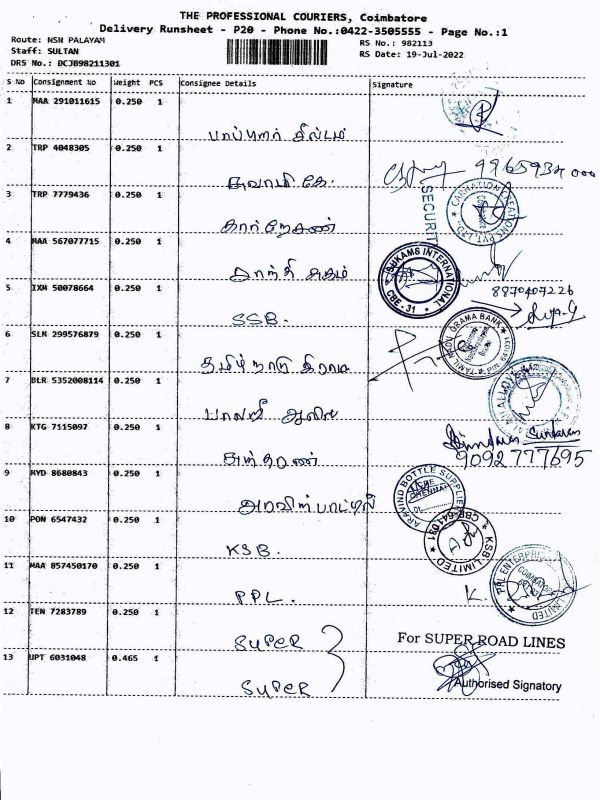 THE PROFESSIONAL COURIERS, Coimbatore
Delivery Runsheet - P20 - Phone No.:0422-3505555 - Page No.:1
Route: NSN PALAYAM
RS No.: 982113
Staff: SULTAN
RS Date: 19-Jul-2022
DRS No.: DCJB98211301
S No Consignment No Weight PCS Consignee Details Signature
1 MAA 291011615 0.250 1
2 TRP 4048305 0.250 1
3 TRP 7779436 0.250 1
SECURIT
4 MAA 567077715 0.250 1
SUKAMS INTERNATIONAL
CBE-31
5 IXM 50078664 0.250 1
SSB.
8870407226
6 SLN 299576879 0.250 1
தமிழ் நாடு கிராம
TAMIL NADU GRAMA BANK
7 BLR 5352008114 0.250 1
பாலாஜி
8 KTG 7115097 0.250 1
சுந்தரன்
Sundaram
9092777695
9 HYD 8680843 0.250 1
அரவிந்பாட்டில்
ARAVIND BOTTLE SUPPLIER
10 PON 6547432 0.250 1
KSB.
KSB LIMITED
CBE-641031
11 MAA 857450170 0.250 1
PPL.
PPL ENTERPRISES
LIMITED
12 TEN 7283789 0.250 1
SUPER
For SUPER ROAD LINES
13 UPT 6031048 0.465 1
SUPER
Authorised Signatory